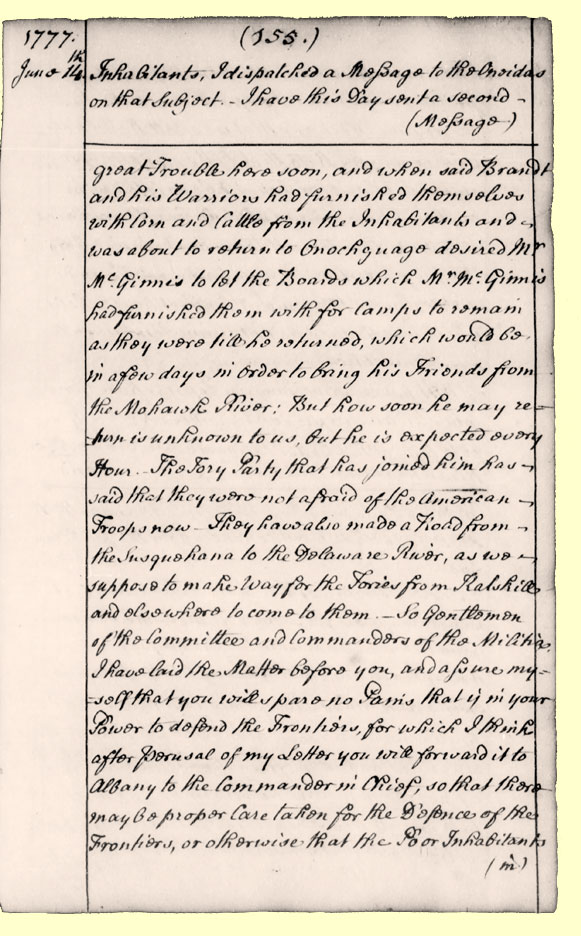 1777. (155.)
June 14th Inhabitants, I dispatched a Message to the Oneidas
on that Subject. - I have this Day sent a second -
(Message)
great Trouble here soon, and when said Brandt
and his Warriors had furnished themselves
with Corn and Cattle from the Inhabitants and -
was about to return to Onochguage desired Mr
Mc. Ginnis to let the Boards which Mr. Mc. Ginnis
had furnished them with for Camps to remain
as they were till he returned, which would be
in a few days in order to bring his Friends from
the Mohawk River; But how soon he may re=
=turn is unknown to us, but he is expected every
Hour. - The Tory Party that has joined him has -
said that they were not afraid of the American -
Troops now - They have also made a Road from -
the Susquehana to the Delaware River, as we -
suppose to make Way for the Tories from Katskill
and elsewhere to come to them. - So Gentlemen
of the Committee and Commanders of the Militia
I have laid the Matter before you, and assure my=
=self that you will spare no Pains that is in your
Power to defend the Frontiers, for which I think
after Perusal of my Letter you will forward it to
Albany to the Commander in Chief, so that there
may be proper Care taken for the Defence of the
Frontiers, or otherwise that the Poor Inhabitants
(in)